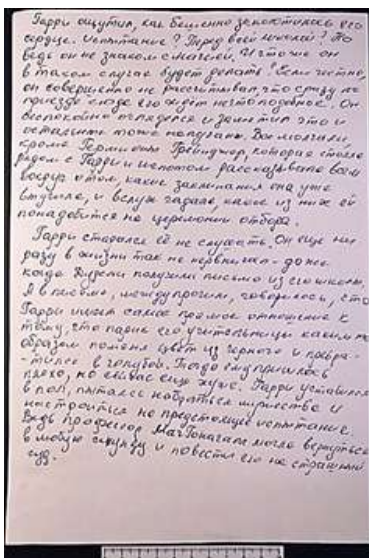 Гарри ощутил, как бешенно заколотилось его
сердце. Испытание? Перед всей школой? Но
ведь он не знаком с магией. И что же он
в таком случае будет делать? Если честно,
он совершенно не рассчитывал, что сразу по
приезде сюда его ждёт нечто подобное. Он
беспокойно огляделся и заметил что и
остальные тоже напуганы. Все молчали
кроме Гермионы Грейнджер, которая стояла
рядом с Гарри и шепотом рассказывала всем
вокруг о том, какие заклинания она уже
выучила, и вслух гадала, какое из них ей
понадобится на церемонии отбора.
Гарри старался её не слушать. Он еще ни
разу в жизни так не нервничал - даже
когда Дурсли получили письмо из его школы.
А в письме, между прочим, говорилось, что
Гарри имеет самое прямое отношение к
тому, что парик его учительницы каким-то
образом поменял цвет из черного и превра-
-тился в голубой. Тогда ему пришлось
плохо, но сейчас еще хуже. Гарри уставился
в пол, пытаясь набраться мужества и
настроиться на предстоящее испытание.
Ведь профессор МакГонагалл могла вернуться
в любую секунду и повести его на страшный
суд.